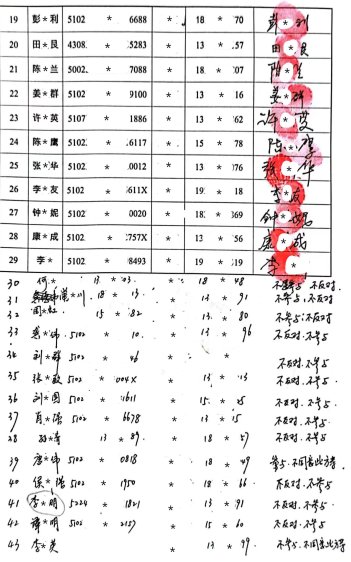 19 彭*刚 5102 * 6688 * 18 * 70 彭*刚
20 田*艮 4308. * .5283 * 13 * .57 田*艮
21 陈*兰 5002. * 7088 * 18 * '07 陈*兰
22 姜*群 5102 * 9100 * 13 * 16 姜*群
23 许*英 5107 * 1886 * 13 * 62 许*英
24 陈*鹰 5102 * .6117 * 15 * 78 陈*鹰
25 张*华 5102 * .0012 * 13 * 76 张*华
26 李*友 5102 * 611X * 19. * 18 李*友
27 钟*妮 5102 * 0020 * 18 * 69 钟*妮
28 康*成 5102 * .757X * 13 * 56 康*成
29 李* 5102 * 8493 * 13 * 19 李*
30 何* 13 * 03. * 18 * 48 不参与 不反对.
31 川. 18 * 13 * 13 * 91 不参与.不反对
32 周* 15 * 82 * 13 * 80 不参与.不反对
33 *伟 5102 * 10. * 13 * 96 不反对.不参与
34 刘*群 * 46 * * 不反对.不参与
35 张*敏 5102 * 004X * 13 * 13 不反对.不参与
36 刘*国 5102 * 1611 * 15 * 25 不反对.不参与
37 肖*强 5102 * 6678 * 13 * 15 不反对.不参与
38 * 13 * 89. * 18 * 57 不反对.不参与
39 唐*伟 5102 * 0818 * 18 * 49 参与.不同意此诺
40 侯*浩 5102 * 1950 * 18 * 66 不反对.不参与
41 李*明 5224 * 1821 * 13 * 91 不反对.不参与
42 谭*明 5102 * 2157 * 15 * 60 不反对.不参与
43 李*英 * 13 * 99. 不参与.不同意此诺